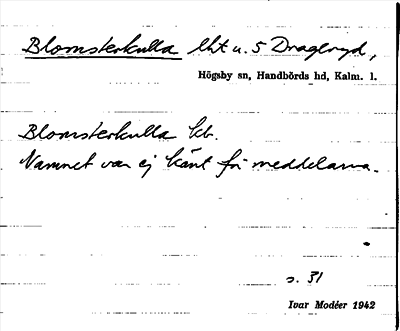 Blomsterkulla lht u. 5 Drageryd,
Högsby sn, Handbörds hd, Kalm. l.
Blomsterkulla kb.
Namnet var ej känt för meddelarna.
s. 31
Ivar Modéer 1942